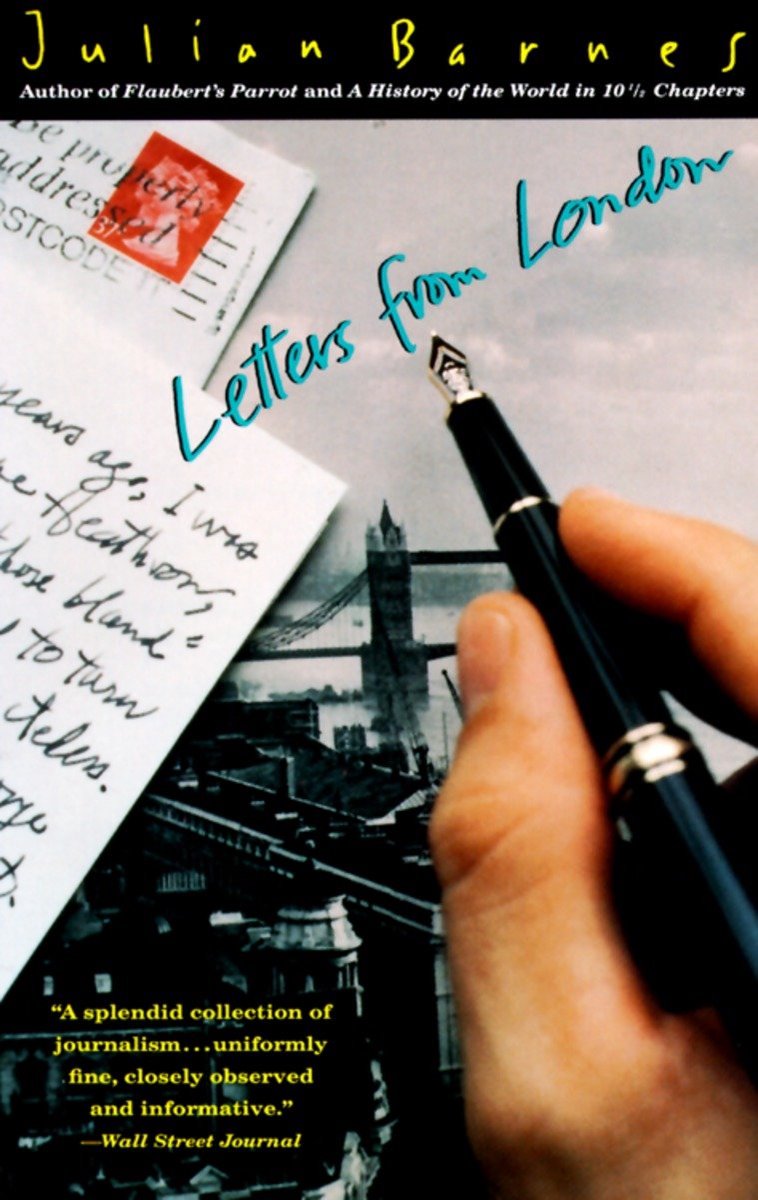 Julian Barnes
Author of Flaubert's Parrot and A History of the World in 10 1/2 Chapters
Be properly
addressed
POSTCODE IT
37
Letters from London
years ago, I was
Heathrow,
those bland
to turn
"A splendid collection of
journalism...uniformly
fine, closely observed
and informative."
—Wall Street Journal